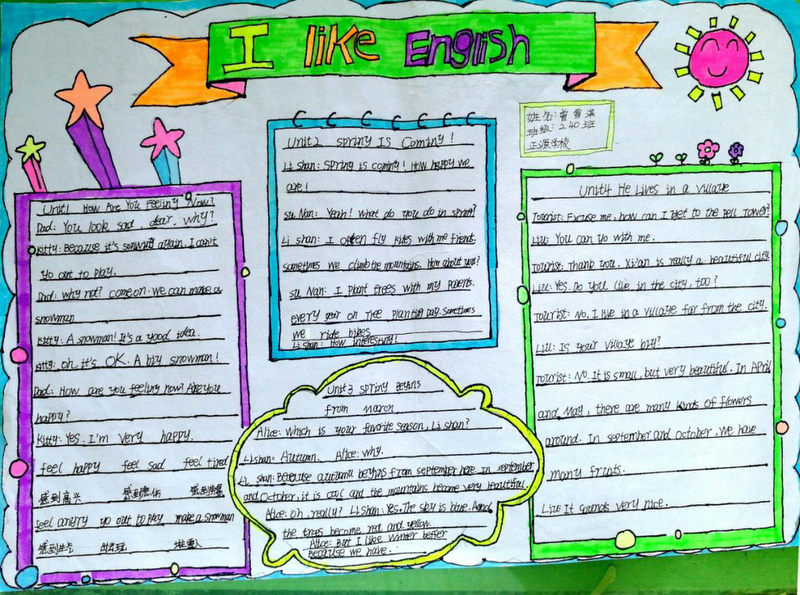 I like English
姓名:
班级: 240班
正源学校
Unit1 How Are You Feeling Now?
Dad: You look sad dear. Why?
Kitty: Because it's snowing again. I can't
go out to play.
Dad: why not? come on. we can make a
snowman
Kitty: A snowman! It's a good idea.
Kitty: oh, it's OK. A big snowman!
Dad: How are you feeling now? Are you
happy?
Kitty: Yes. I'm very happy.
feel happy feel sad feel tired
感到高兴 感到
feel angry go out to play make a snowman
感到生气 出去玩 堆雪人
Unit2 spring Is Coming!
Li shan: spring is coming! How happy we
are!
su Nan: Yeah! What do you do in spring?
Li shan: I often fly kites with me friends.
sometimes we climb the mountains. How about you?
su Nan: I plant trees with my parents.
every year on Tree planting day. Sometimes
we ride bikes.
Li shan: How interesting!
Unit3 spring Begins
from march
Alice: which is your favorite season, Li shan?
Li shan: Autumn. Alice: why.
Li shan: Because autumn begins from september here. In september
and October, it is cool and the mountains become very beautiful.
Alice: oh, really? Li shan: Yes. The sky is blue. And
the trees become red and yellow.
Alice: But I like winter better
because we have...
Unit4 He Lives in a village
Tourist: Excuse me, how can I get to the Bell Tower?
Liu: You can go with me.
Tourist: Thank you. Xi'an is really a beautiful city.
Liu: Yes. Do you live in the city, too?
Tourist: No. I live in a village far from the city.
Liu: Is your village big?
Tourist: No. It is small, but very beautiful. In April
and May, there are many kinds of flowers
around. In september and October, we have
many fruits.
Liu: It sounds very nice.